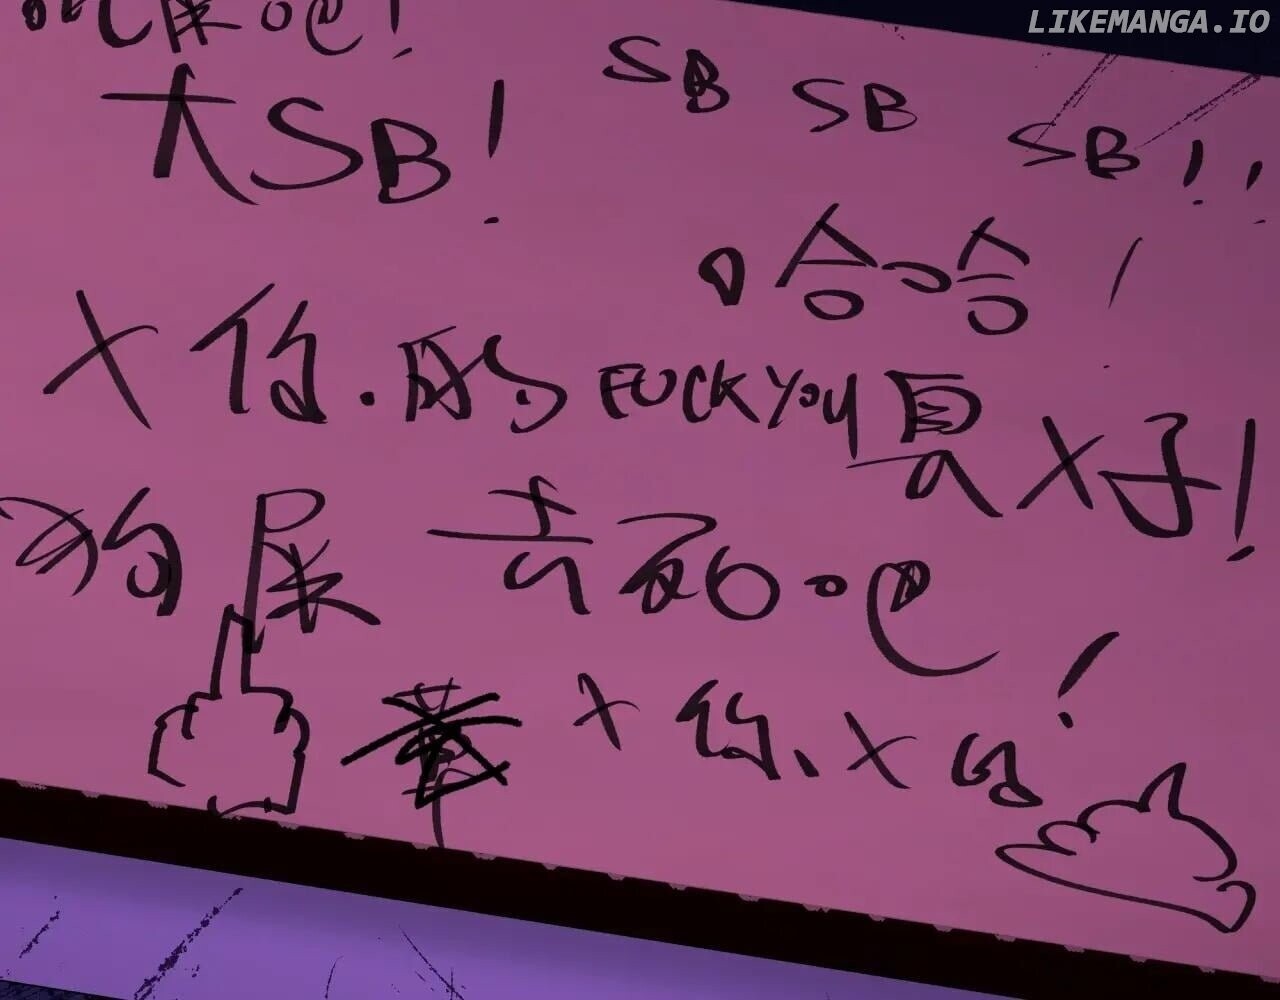 LIKEMANGA.IO
吃屎吧!
大SB!
SB SB SB!!
哈哈!
X你.的FUCK YOU臭X子!
狗屎 去死吧!
X你、X的